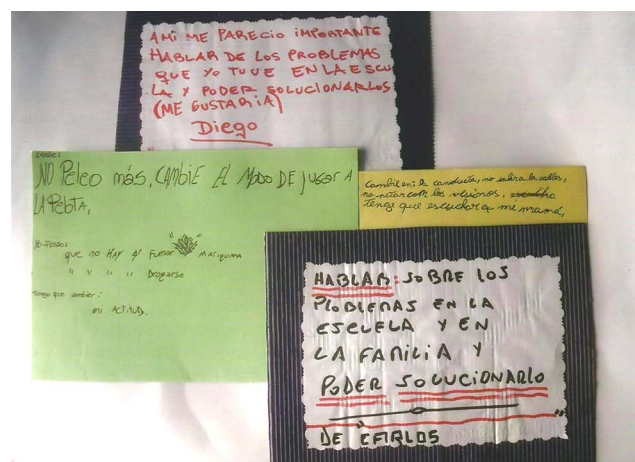 A MI ME PARECIO IMPORTANTE
HABLAR DE LOS PROBLEMAS
QUE YO TUVE EN LA ESCU
LA Y PODER SOLUCIONARLOS
(ME GUSTARIA)
Diego
NO Peleo más, CAMBIE El Modo DE jugar A
LA Pelota,
que no HAY q' Fumar MARIGUANA
" " " " Drogarse
Tengo que cambiar:
mi ACTITUD.
Cambie en: la conducta, no subir a la calles,
no petar con los vesinos,
tengo que escuchar a mi mamá,
HABLAR: SOBRE LOS
PROBLEMAS EN LA
ESCUELA Y EN
LA FAMILIA Y
PODER SOLUCIONARLO
DE CARLOS